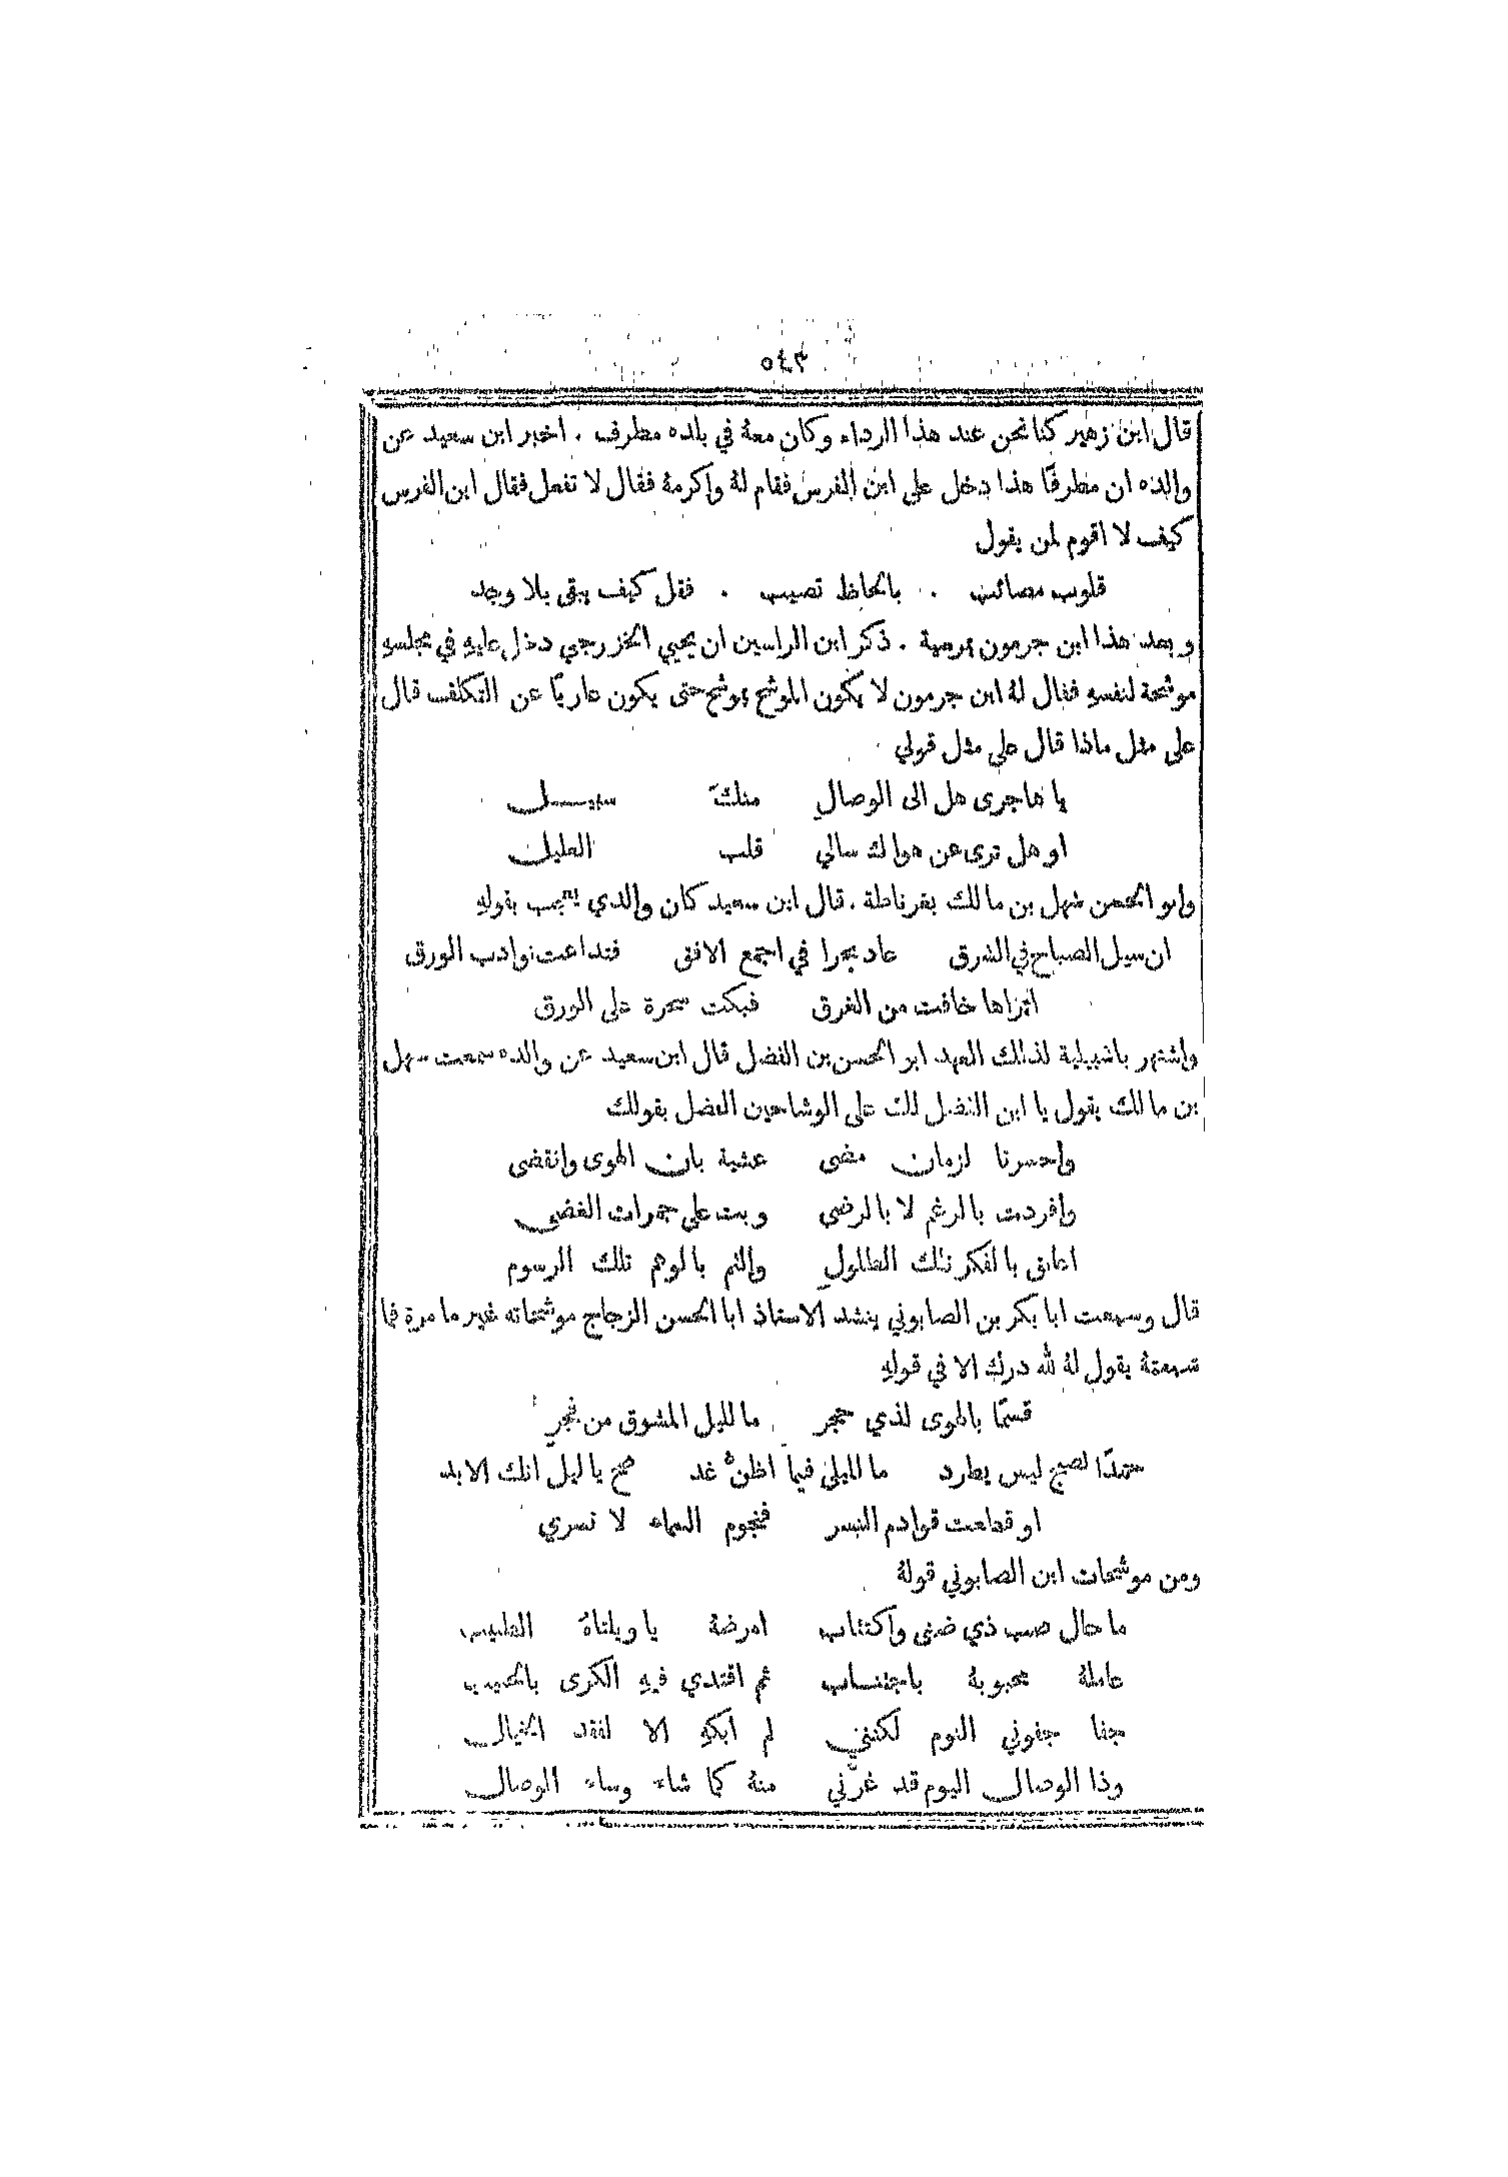 ٥٤٣
قال ابن زهير كنا نحن عند هذا الرداء وكان معهُ في بلده مطرف . اخبر ابن سعيد عن
والده ان مطرفًا هذا دخل على ابن الفرس فقام لهُ واكرمهُ فقال لا تفعل فقال ابن الفرس
كيف لا اقوم لمن يقول
قلوب مصائب . بالحاظ تصيب . فقل كيف يبقى بلا وجد
وبعد هذا ابن جرمون بمرسية . ذكر ابن الراسين ان يحيي الخزرجي دخل عليهِ في مجلسهِ
موشحة لنفسهِ فقال لهُ ابن جرمون لا يكون الموشح بموشح حتى يكون عاريًا عن التكلف قال
على مثل ماذا قال على مثل قولي
يا هاجرى هل الى الوصال منكَ سبيل
او هل ترى عن هواك سالي قلب العليل
وابو الحسن سهل بن مالك بغرناطة . قال ابن سعيد كان والدي يعجب بقولهِ
ان سيل الصباح في الشرق عاد بحرا في اجمع الافق فتداعت نوادب الورق
اتراها خافت من الغرق فبكت سحرة على الورق
واشتهر باشبيلية لذلك العهد ابو الحسن بن الفضل قال ابن سعيد عن والده سمعت سهل
بن مالك يقول يا ابن الفضل لك على الوشاحين الفضل بقولك
واحسرتا لزمان مضى عشية بان الهوى وانقضى
وافردت بالرغم لا بالرضى وبت على جمرات الغضى
اعانق بالفكر تلك الطلول والثم بالوهم تلك الرسوم
قال وسمعت ابا بكر بن الصابوني ينشد الاستاذ ابا الحسن الزجاج موشحاته غير ما مرة فما
سمعتهُ يقول لهُ لله درك الا في قولهِ
قسمًا بالهوى لذي حجر ما لليل المشوق من فجر
جمدًا لصبح ليس يطرد ما لليلى فيما اظنُّ غد صح يا ليل انك الابد
او قطعت قوادم النسر فنجوم السماء لا تسري
ومن موشحات ابن الصابوني قولهُ
ما حال صب ذي ضنى واكتئاب امرضهُ يا ويلتاهُ الطبيب
عاملهُ محبوبهُ باجتناب ثم اقتدي فيهِ الكرى بالحبيب
جفا جفوني النوم لكنني لم ابكهِ الا لفقد الخيال
وذا الوصال اليوم قد غرّني منهُ كما شاء وساء الوصال